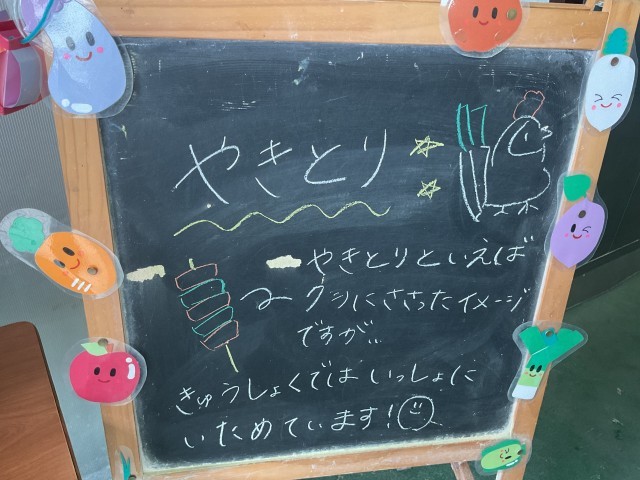 やきとり
やきとりといえば
クシにささったイメージ
ですが…
きゅうしょくではいっしょに
いためています!